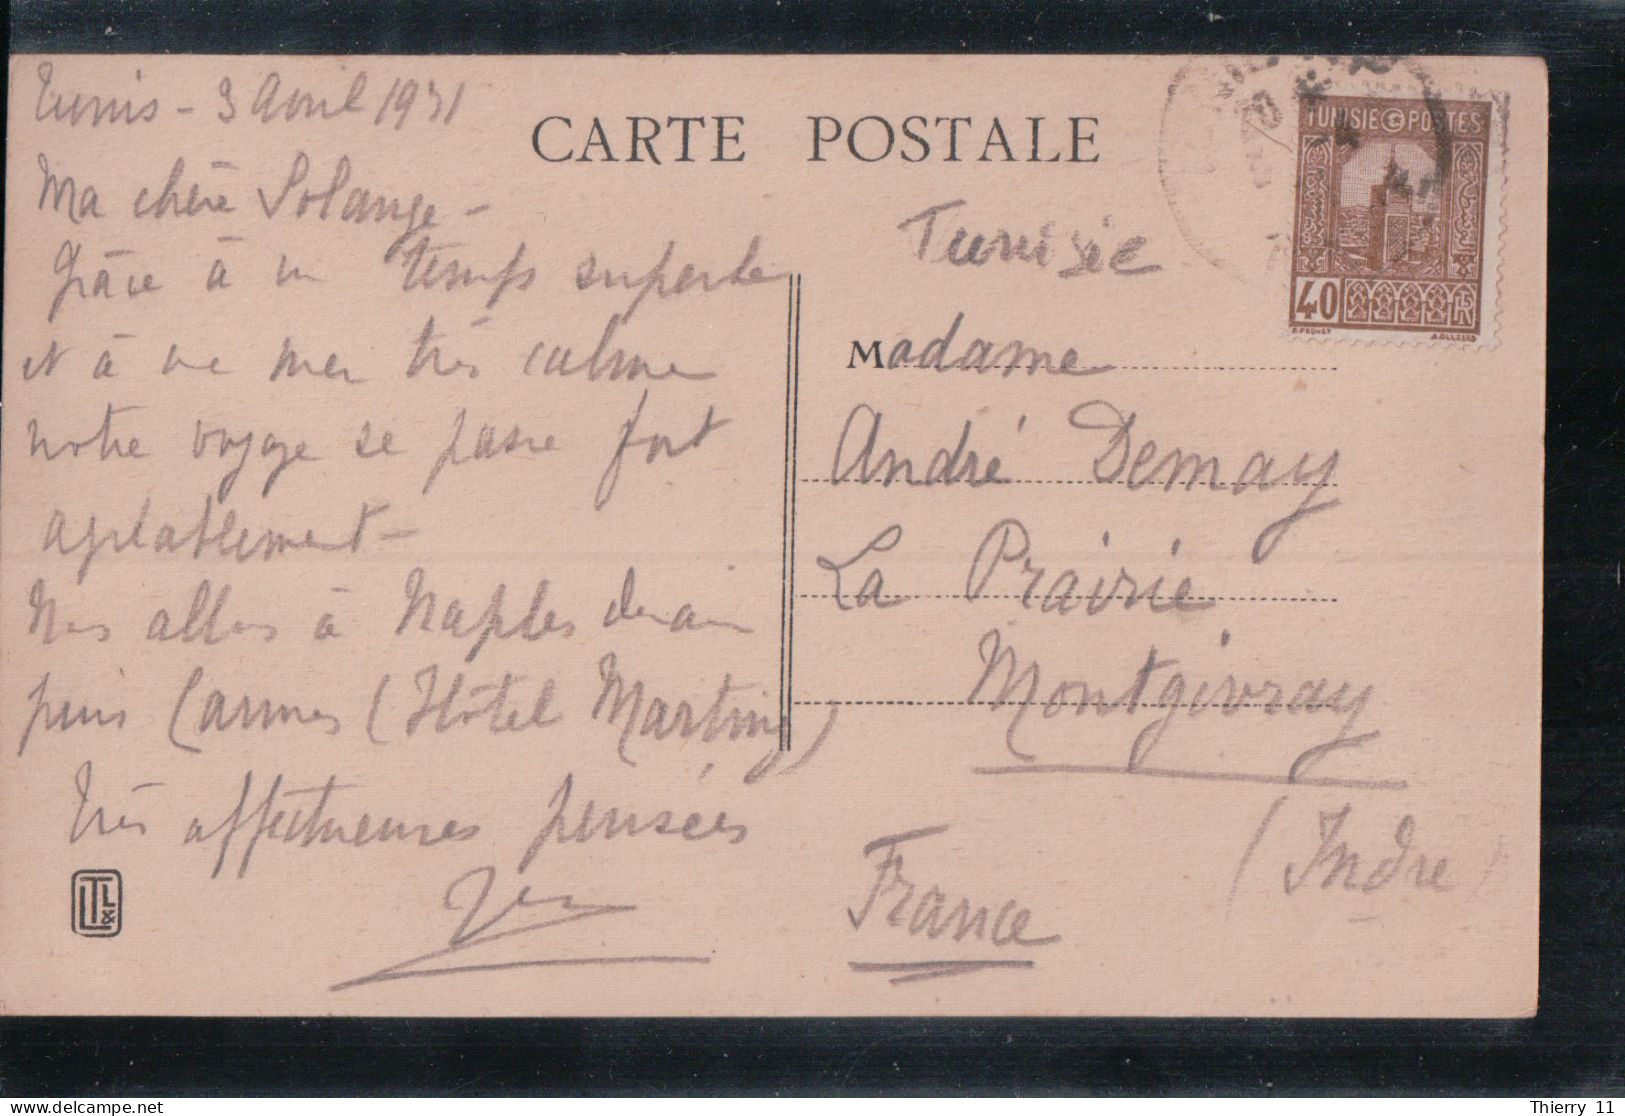 Tunis - 3 Avril 1931
CARTE POSTALE
Ma chère Solange -
Grâce à un temps superbe
et à une mer très calme
notre voyage se passe fort
agréablement -
Nous allons à Naples demain
puis Cannes (Hôtel Martinez)
Très affectueuses pensées
TUNISIE POSTES
40
Tunisie
Madame
André Demay
La Prairie
Montgivray
(Indre)
France
LTL&
Thierry 11